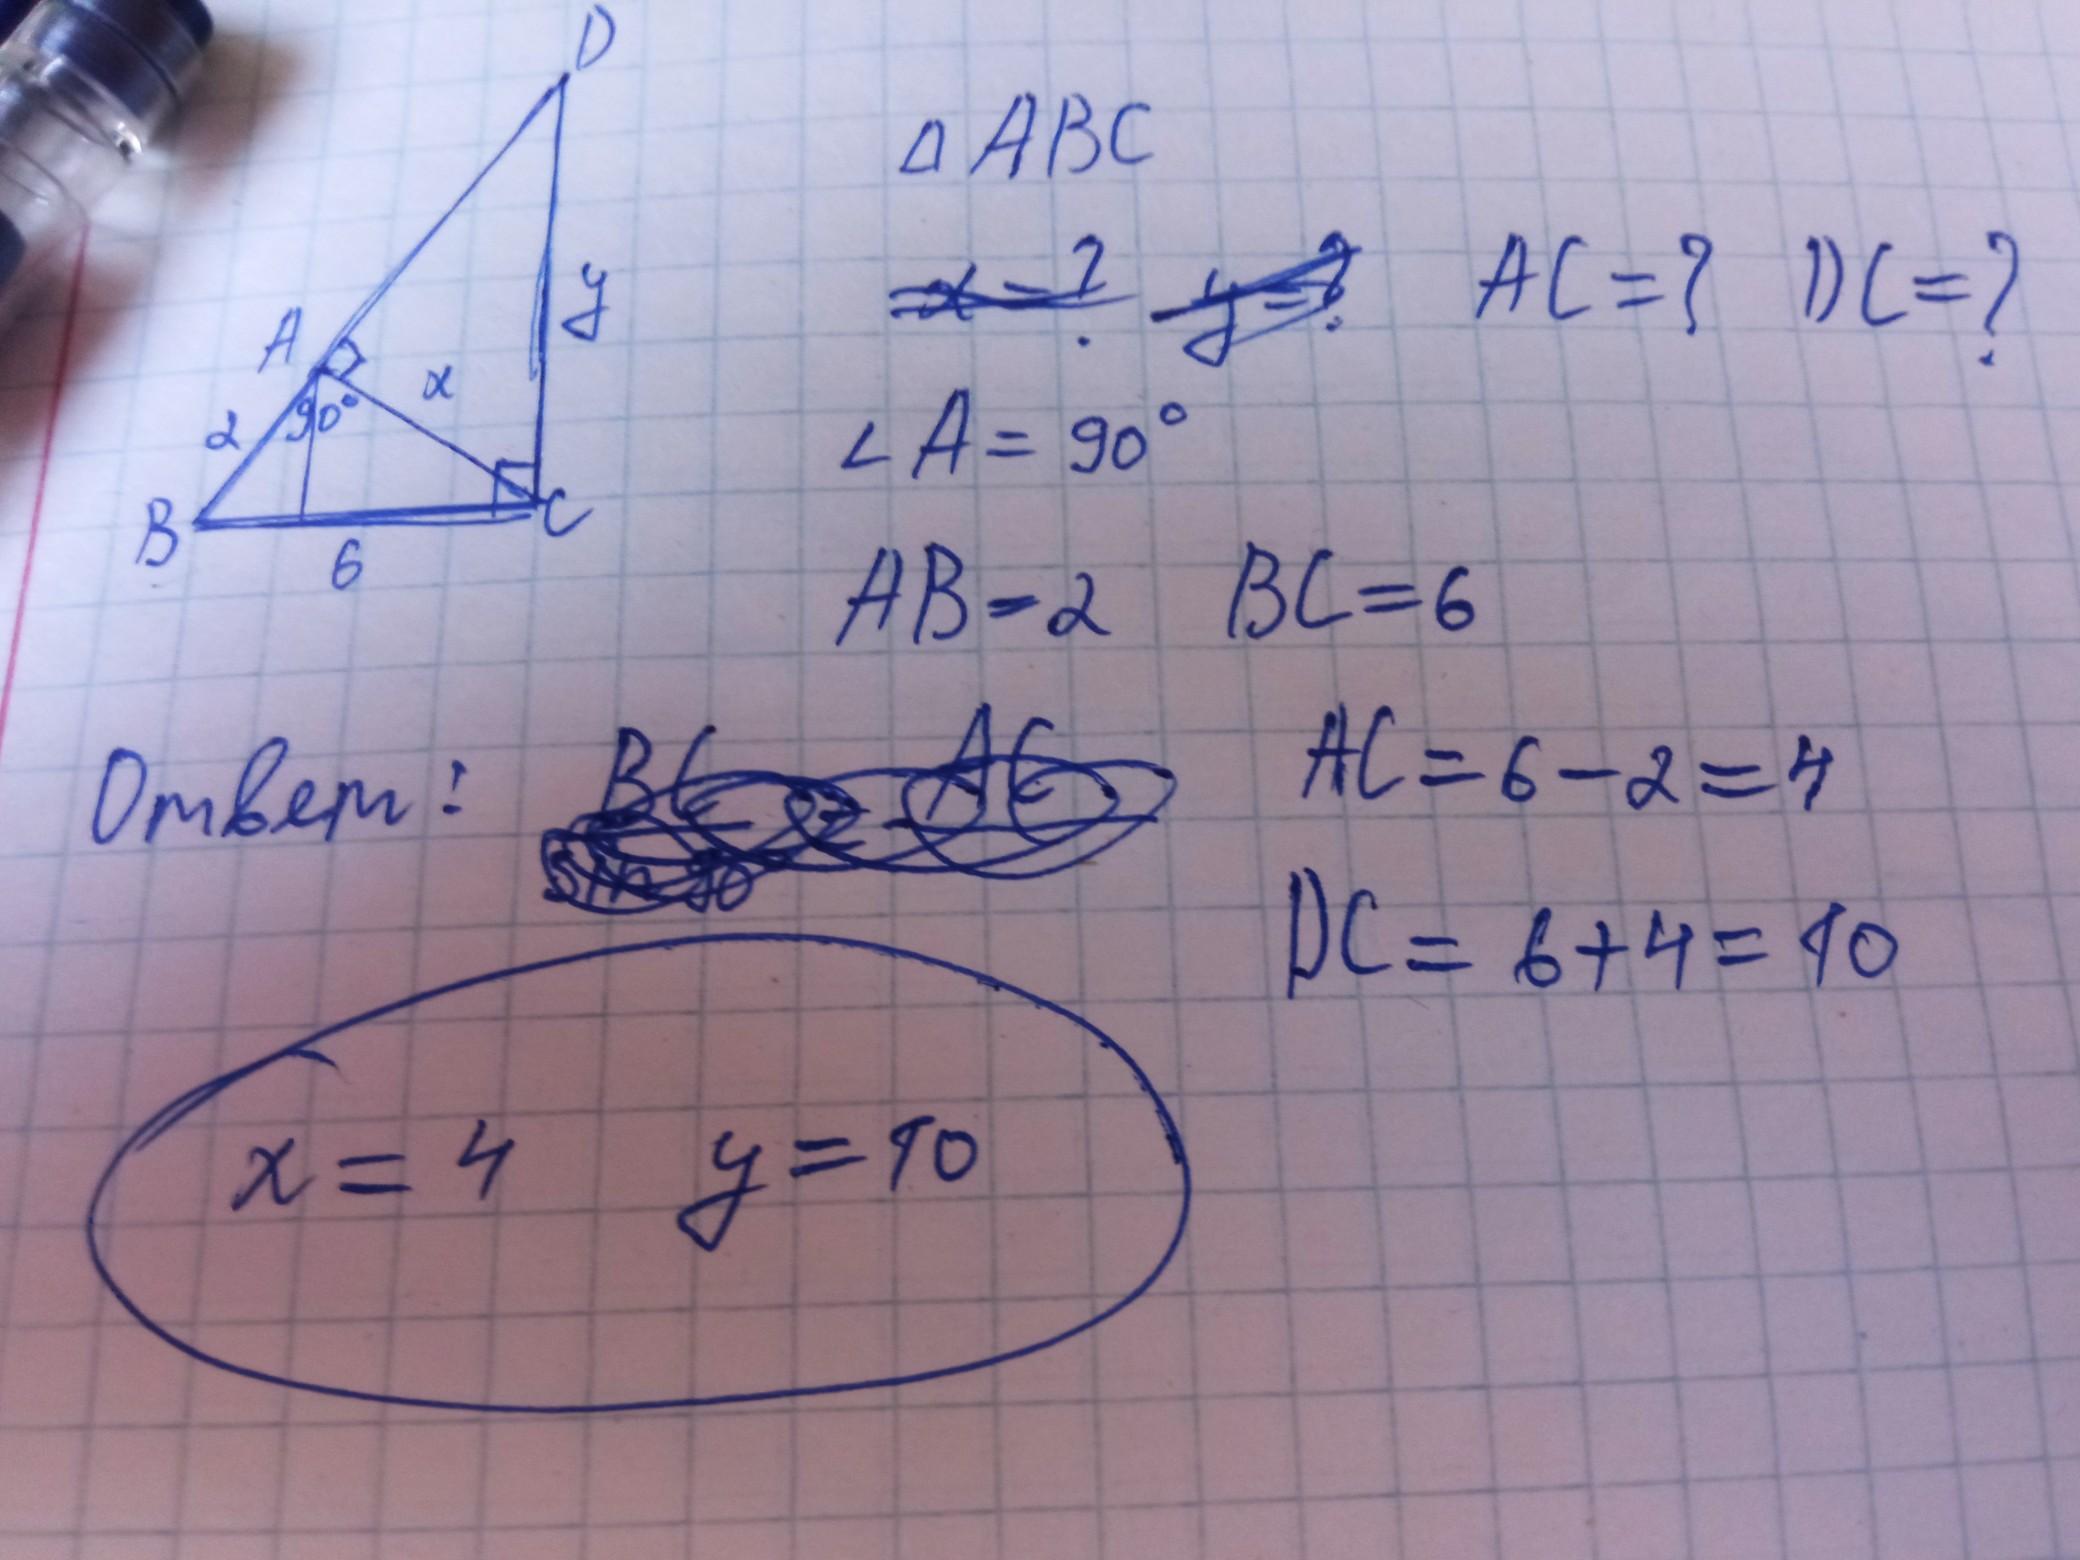 D
△ ABC
x = ? y = ? AC = ? DC = ?
y
A
x
∠A = 90°
2 90°
B C
6
AB = 2 BC = 6
Ответ: BC = AC AC = 6 - 2 = 4
sin 90
DC = 6 + 4 = 10
x = 4 y = 10